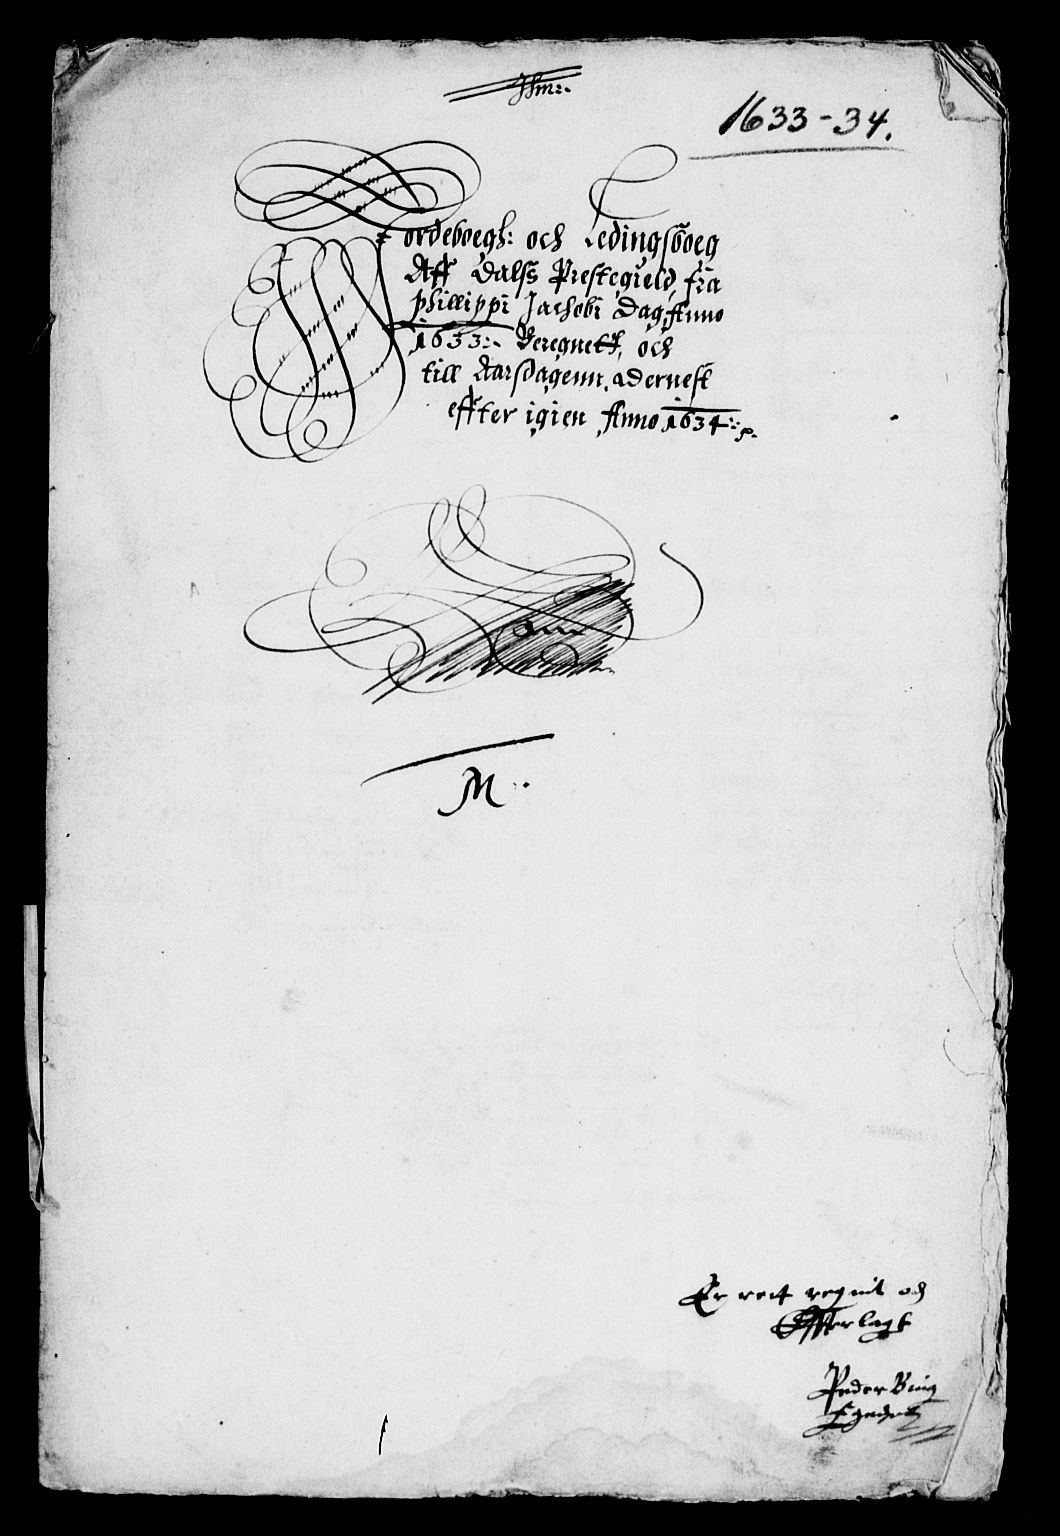 1633-34.
Jordeboegh: och Ledingsboeg
Aff Dalss Prestegield fra
Phillippi Jachobi Dag Anno
1633:. Beregnett, och
till Aarsdagenn, Dernest
effter igien Anno 1634:
M:
Er rett regnit och
Offerlagt
Peder Bing